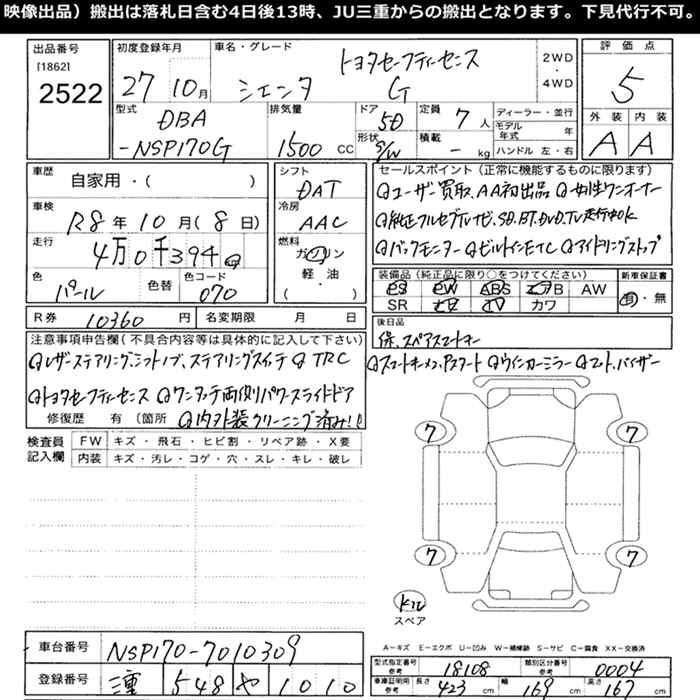 映像出品）搬出は落札日含む4日後13時、JU三重からの搬出となります。下見代行不可。
出品番号
[1862]
2522
初度登録年月
27 10月
車名・グレード
トヨタセーフティーセンス
シエンタ G
2WD
・
4WD
評価点
5
外装 内装
A A
型式
DBA
-NSP170G
排気量
1500 CC
ドア
5D
形状
S/W
定員
7 人
積載
- kg
ディーラー・並行
モデル年式 年
ハンドル 左・右
車歴
自家用・( )
シフト
DAT
車検
R8年10月(8日)
冷房
AAC
走行
4万0千394
燃料
ガソリン
軽・油
( )
色
パール
色替
色コード
070
セールスポイント（正常に機能するものに限ります）
Qユーザー買取、AA初出品 Q女性ワンオーナー
Q純正フルセグTVナビ、SD、BT、DVD、TV走行中OK
Qバックモニター QビルトインETC Qアイドリングストップ
装備品（純正品に限り○をつけてください）
PS PW ABS エアB AW
SR ナビ TV カワ
新車保証書
有・無
R券 10360円
名変期限 月 日
後日品
保、スペアスマートキー
注意事項申告欄（不具合内容等は具体的に記入して下さい）
Qレザーステアリング、シフトノブ、ステアリングスイッチ Q TRC
Qスマートキー×2、Pスタート Qウインカーミラー Qマット、バイザー
Qトヨタセーフティーセンス Qワンタッチ両側パワースライドドア
修復歴 有〔箇所 Q内外装クリーニング済み!!
検査員
記入欄
FW キズ・飛石・ヒビ割・リペア跡・X要
内装 キズ・汚レ・コゲ・穴・スレ・キレ・破レ
7 7
7 7
スペア
A－キズ E－エクボ U－凹み W－補修跡 S－サビ C－腐食 XX－交換済
車台番号 NSP170-7010309
登録番号 三重 548 や 1010
型式指定番号 参考 18108
類別区分番号 参考 0004
車庫証明用 参考 長さ 423 cm 幅 169 cm 高さ 167 cm